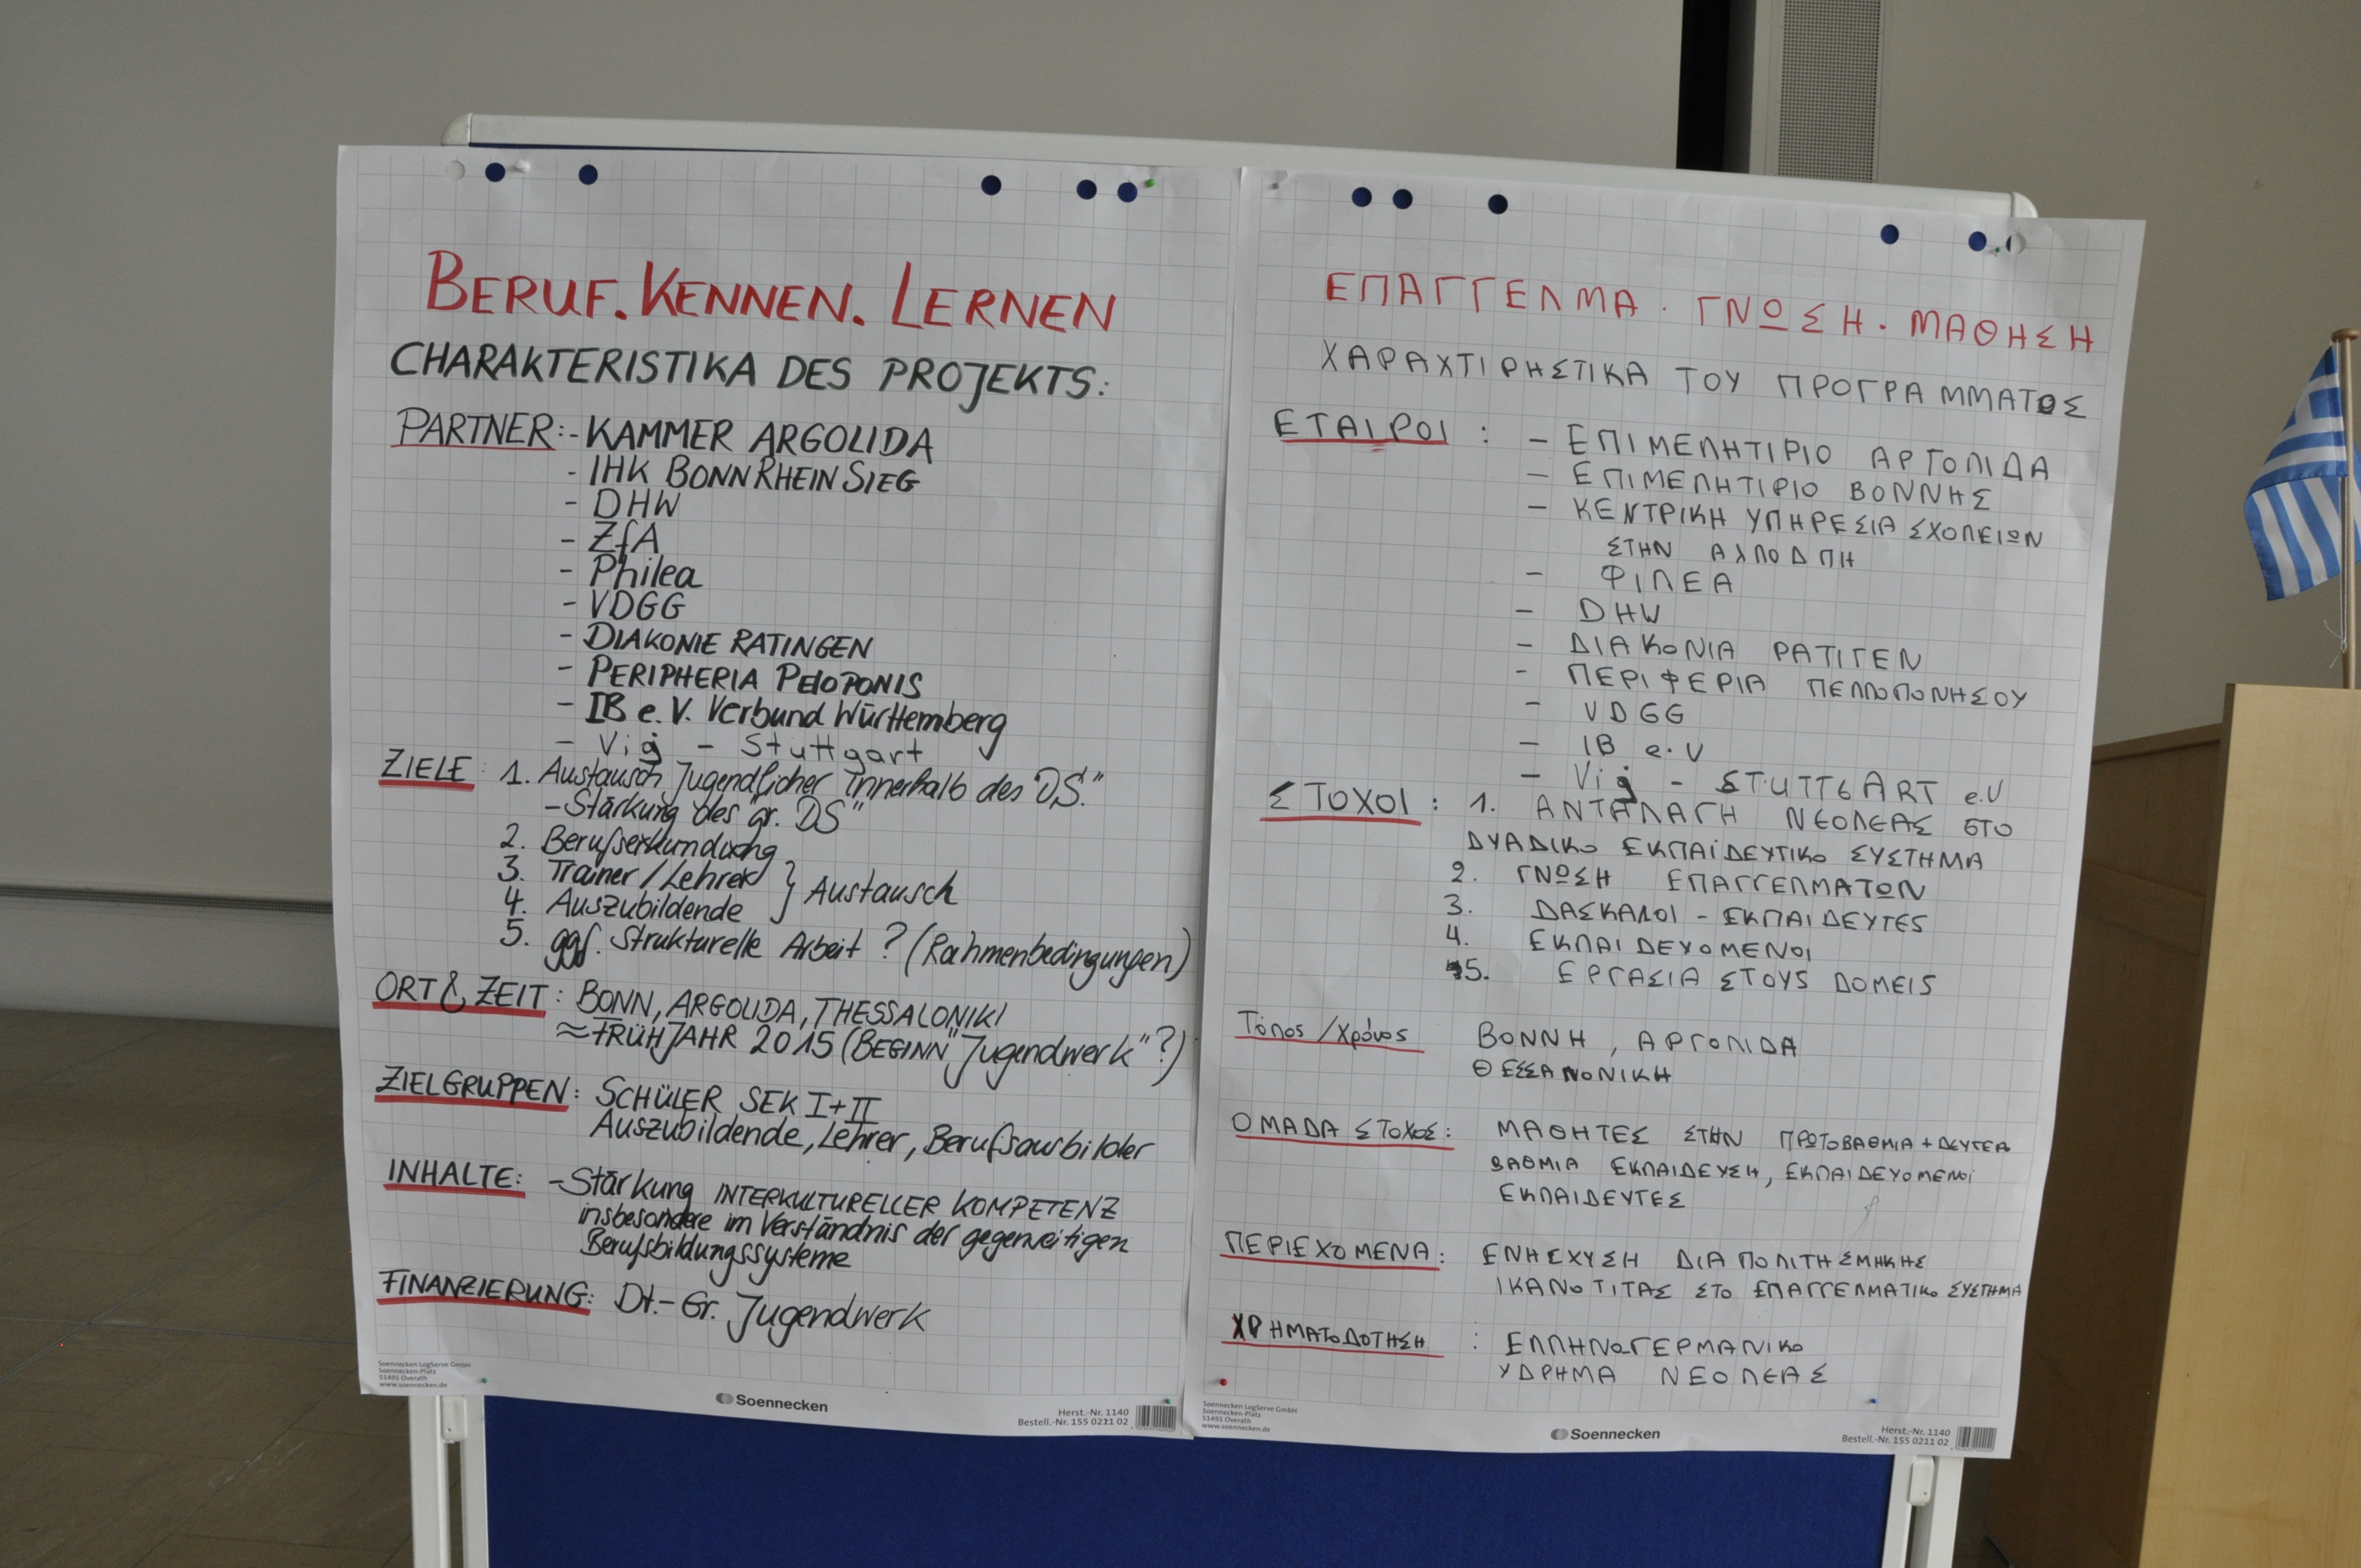 BERUF. KENNEN. LERNEN
CHARAKTERISTIKA DES PROJEKTS:
PARTNER: - KAMMER ARGOLIDA
- IHK BONN RHEIN SIEG
- DHW
- ZfA
- Philea
- VDGG
- DIAKONIE RATINGEN
- PERIPHERIA PELOPONIS
- IB e.V. Verbund Württemberg
- Vig - Stuttgart
ZIELE: 1. Austausch Jugendlicher innerhalb des "DS."
- Stärkung des "gr. DS"
2. Berufserkundung
3. Trainer/Lehrer } Austausch
4. Auszubildende
5. ggf. Strukturelle Arbeit? (Rahmenbedingungen)
ORT & ZEIT: BONN, ARGOLIDA, THESSALONIKI
≈ FRÜHJAHR 2015 (BEGINN "Jugendwerk"?)
ZIELGRUPPEN: SCHÜLER SEK I+II
Auszubildende, Lehrer, Berufsausbilder
INHALTE: - Stärkung INTERKULTURELLER KOMPETENZ
insbesondere im Verständnis der gegenseitigen
Berufsbildungssysteme
FINANZIERUNG: Dt.-Gr. Jugendwerk
Soennecken LogServe GmbH
Soennecken-Platz
51491 Overath
www.soennecken.de
Soennecken
Herst.-Nr. 1140
Bestell.-Nr. 155 0211 02
ΕΠΑΓΓΕΛΜΑ. ΓΝΩΣΗ. ΜΑΘΗΣΗ
ΧΑΡΑΧΤΙΡΗΣΤΙΚΑ ΤΟΥ ΠΡΟΓΡΑΜΜΑΤΟΣ
ΕΤΑΙΡΟΙ: - ΕΠΙΜΕΛΗΤΙΡΙΟ ΑΡΓΟΛΙΔΑ
- ΕΠΙΜΕΛΗΤΙΡΙΟ ΒΟΝΝΗΣ
- ΚΕΝΤΡΙΚΗ ΥΠΗΡΕΣΙΑ ΣΧΟΛΕΙΩΝ
ΣΤΗΝ
- ΦΙΛΕΑ
- DHW
- ΔΙΑΚΟΝΙΑ ΡΑΤΙΓΕΝ
- ΠΕΡΙΦΕΡΙΑ ΠΕΛΛΟΠΟΝΗΣΟΥ
- VDGG
- IB e.V
- Vig - STUTTGART e.V
ΣΤΟΧΟΙ: 1. ΑΝΤΑΛΑΓΗ ΝΕΟΛΕΑΣ ΣΤΟ
ΔΥΑΔΙΚΟ ΕΚΠΑΪΔΕΥΤΙΚΟ ΣΥΣΤΗΜΑ
2. ΓΝΩΣΗ ΕΠΑΓΓΕΛΜΑΤΩΝ
3. ΔΑΣΚΑΛΟΙ - ΕΚΠΑΙΔΕΥΤΕΣ
4. ΕΚΠΑΙΔΕΥΟΜΕΝΟΙ
5. ΕΡΓΑΣΙΑ ΣΤΟΥΣ ΔΟΜΕΙΣ
Τόπος/Χρόνος ΒΟΝΝΗ, ΑΡΓΟΛΙΔΑ
ΘΕΣΣΑΛΟΝΙΚΗ
ΟΜΑΔΑ ΣΤΟΧΟΣ: ΜΑΘΗΤΕΣ ΣΤΗΝ ΠΡΩΤΟΒΑΘΜΙΑ + ΔΕΥΤΕΡ
ΒΑΘΜΙΑ ΕΚΠΑΙΔΕΥΣΗ, ΕΚΠΑΙΔΕΥΟΜΕΝΟΙ
ΕΚΠΑΙΔΕΥΤΕΣ
ΠΕΡΙΕΧΟΜΕΝΑ: ΕΝΗΣΧΥΣΗ ΔΙΑΠΟΛΙΤΗΣΜΗΚΗΣ
ΙΚΑΝΟΤΙΤΑΣ ΣΤΟ ΕΠΑΓΓΕΛΜΑΤΙΚΟ ΣΥΣΤΗΜΑ
ΧΡΗΜΑΤΟΔΟΤΗΣΗ: ΕΛΛΗΝΟΓΕΡΜΑΝΙΚΟ
ΥΔΡΗΜΑ ΝΕΟΛΕΑΣ
Soennecken LogServe GmbH
Soennecken-Platz
51491 Overath
www.soennecken.de
Soennecken
Herst.-Nr. 1140
Bestell.-Nr. 155 0211 02